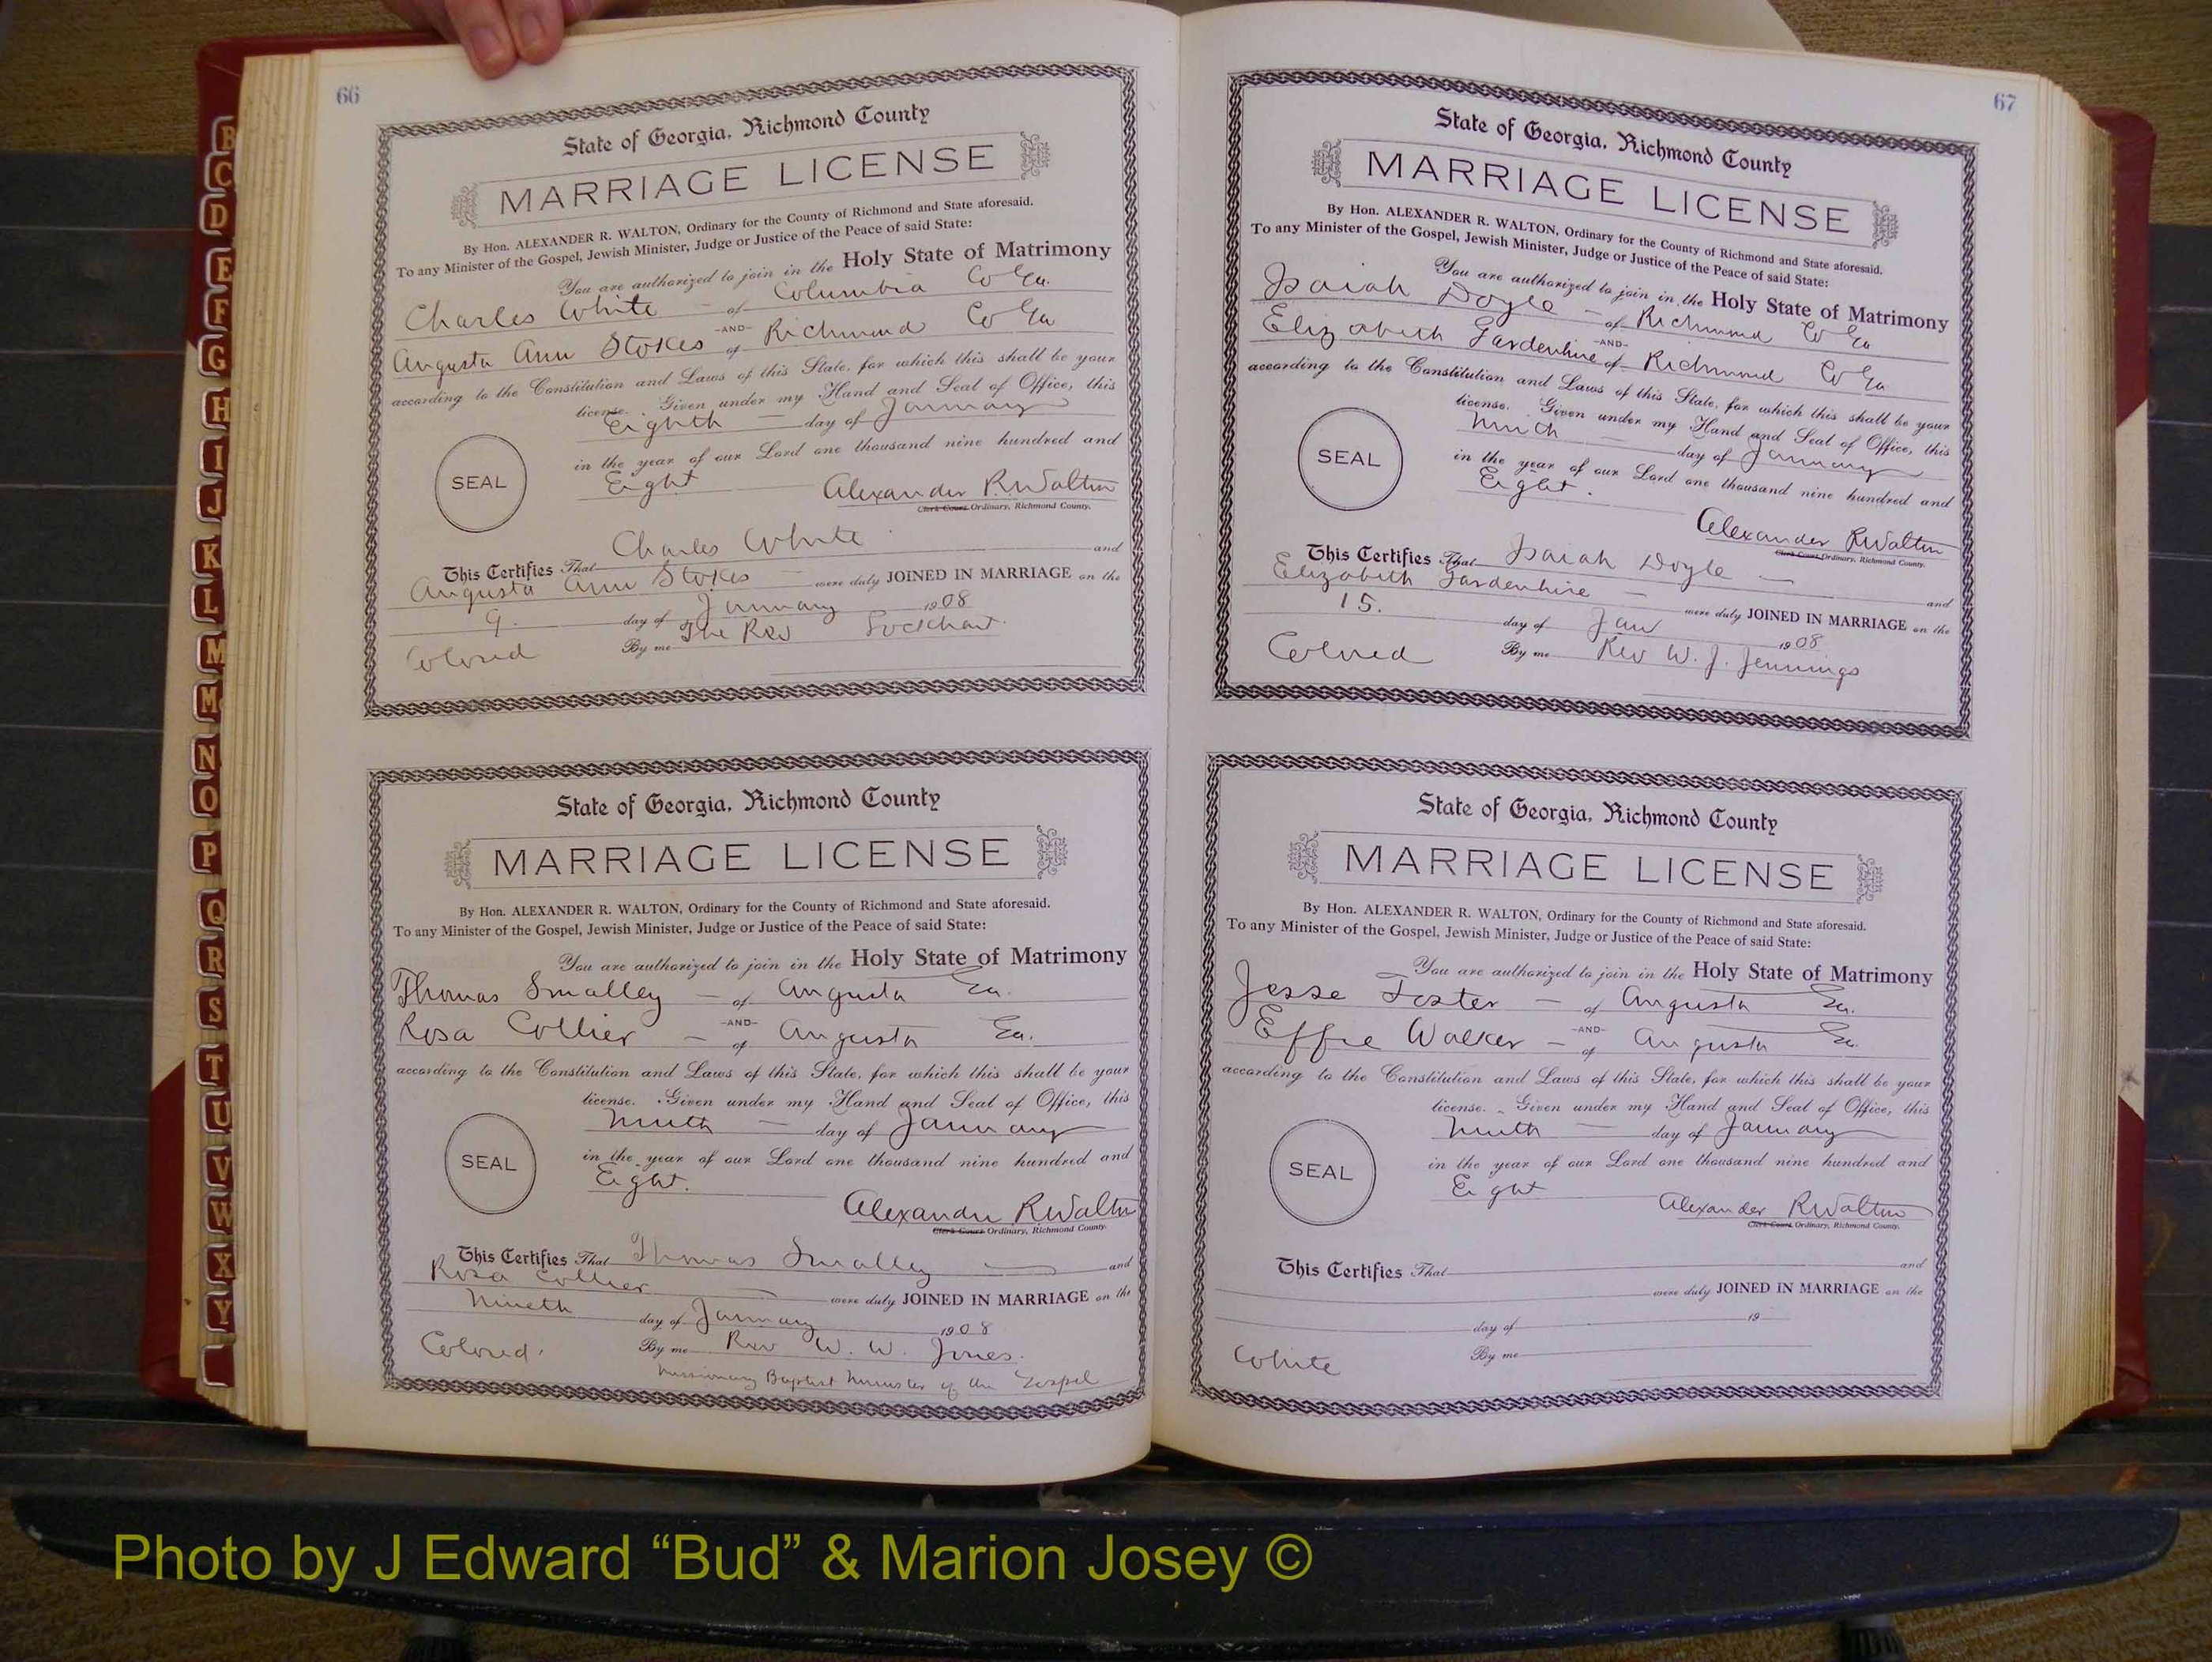 66
State of Georgia, Richmond County
MARRIAGE LICENSE
By Hon. ALEXANDER R. WALTON, Ordinary for the County of Richmond and State aforesaid.
To any Minister of the Gospel, Jewish Minister, Judge or Justice of the Peace of said State:
You are authorized to join in the Holy State of Matrimony
Charles White - of Columbia Co Ga.
-AND-
Augusta Ann Stokes of Richmond Co Ga
according to the Constitution and Laws of this State, for which this shall be your
license. Given under my Hand and Seal of Office, this
Eighth - day of January
in the year of our Lord one thousand nine hundred and
Eight
SEAL
Alexander R Walton
Clerk Court Ordinary, Richmond County.
This Certifies That Charles White and
Augusta Ann Stokes - were duly JOINED IN MARRIAGE on the
9. day of January 1908
Colored By me The Rev Lockhart.
State of Georgia, Richmond County
MARRIAGE LICENSE
By Hon. ALEXANDER R. WALTON, Ordinary for the County of Richmond and State aforesaid.
To any Minister of the Gospel, Jewish Minister, Judge or Justice of the Peace of said State:
You are authorized to join in the Holy State of Matrimony
Thomas Smalley - of Augusta Ga.
-AND-
Rosa Collier - of Augusta Ga.
according to the Constitution and Laws of this State, for which this shall be your
license. Given under my Hand and Seal of Office, this
Ninth - day of January
in the year of our Lord one thousand nine hundred and
Eight.
SEAL
Alexander R Walton
Clerk Court Ordinary, Richmond County.
This Certifies That Thomas Smalley - and
Rosa Collier - were duly JOINED IN MARRIAGE on the
Nineth day of January 1908
Colored. By me Rev W. W. Jones.
Missionary Baptist Minister of the Gospel
67
State of Georgia, Richmond County
MARRIAGE LICENSE
By Hon. ALEXANDER R. WALTON, Ordinary for the County of Richmond and State aforesaid.
To any Minister of the Gospel, Jewish Minister, Judge or Justice of the Peace of said State:
You are authorized to join in the Holy State of Matrimony
Isaiah Doyle - of Richmond Co Ga
-AND-
Elizabeth Gardenhire of Richmond Co Ga
according to the Constitution and Laws of this State, for which this shall be your
license. Given under my Hand and Seal of Office, this
Ninth - day of January
in the year of our Lord one thousand nine hundred and
Eight.
SEAL
Alexander R Walton
Clerk Court Ordinary, Richmond County.
This Certifies That Isaiah Doyle - and
Elizabeth Gardenhire - were duly JOINED IN MARRIAGE on the
15. day of Jan 1908
Colored By me Rev W. J. Jennings
State of Georgia, Richmond County
MARRIAGE LICENSE
By Hon. ALEXANDER R. WALTON, Ordinary for the County of Richmond and State aforesaid.
To any Minister of the Gospel, Jewish Minister, Judge or Justice of the Peace of said State:
You are authorized to join in the Holy State of Matrimony
Jesse Foster - of Augusta Ga.
-AND-
Effie Walker - of Augusta Ga.
according to the Constitution and Laws of this State, for which this shall be your
license. Given under my Hand and Seal of Office, this
Ninth - day of January
in the year of our Lord one thousand nine hundred and
Eight
SEAL
Alexander R Walton
Clerk Court Ordinary, Richmond County.
This Certifies That and
were duly JOINED IN MARRIAGE on the
day of 19
White By me
B
C
D
E
F
G
H
I
J
K
L
M
Mc
N
O
P
Q
R
S
T
U
V
W
X
Y
Photo by J Edward “Bud” & Marion Josey ©